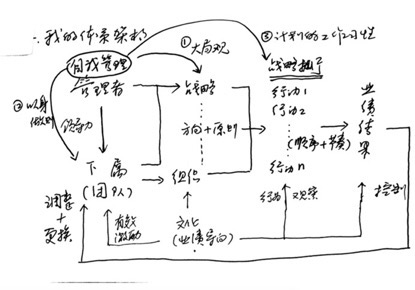 ∴我的体系架构
①大局观
③计划的工作习性
自我管理
战略推演
管理者
②以身做则
领导力
战略
行动1
行动2
方向+原则
(顺序+节奏)
业绩结果
下属
(团队)
组织
行动n
调整
+
更换
有效
激励
文化
(业绩导向)
行为
观察
控制